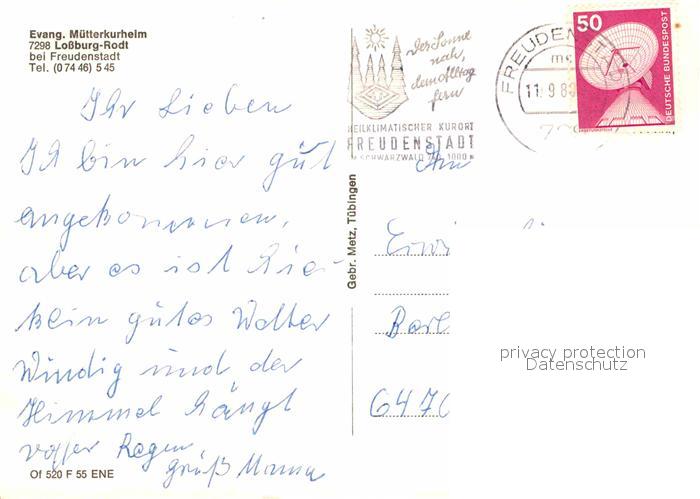 Evang. Mütterkurheim
7298 Loßburg-Rodt
bei Freudenstadt
Tel. (0 74 46) 5 45
Ihr Lieben
Ich bin hier gut
angekommen,
aber es ist hier
kein gutes Wetter
Windig und der
Himmel hängt
voller Regen,
gruß Mama
Of 520 F 55 ENE
Gebr. Metz, Tübingen
der Sonne
nah,
dem Alltag
fern
HEILKLIMATISCHER KURORT
FREUDENSTADT
SCHWARZWALD 700 1000 m
FREUDEN
11.9.8
50
DEUTSCHE BUNDESPOST
An
Erwi
647
privacy protection
Datenschutz